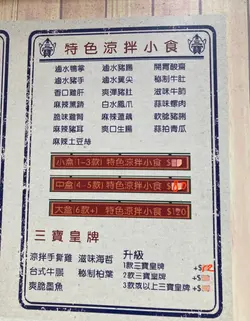 特色涼拌小食
滷水鴨掌 滷水豬腸 開胃酸蘿
滷水豬手 滷水翼尖 秘制牛肚
香口雞肝 爽彈豬肚 滋味牛筋
麻辣黑鱔 白水鳳爪 蒜味螺肉
脆味雞腎 麻辣蓮藕 軟腍豬脷
麻辣豬耳 爽口生腸 蒜拍青瓜
麻辣土豆絲
小盒(1-3款) 特色涼拌小食
中盒(4-5款) 特色涼拌小食
大盒(6款+) 特色涼拌小食
三寶皇牌
涼拌手撕雞 滋味海哲 升級
台式牛𦟌 秘制柏葉 1款三寶皇牌
爽脆墨魚 2款三寶皇牌
3款或以上三寶皇牌